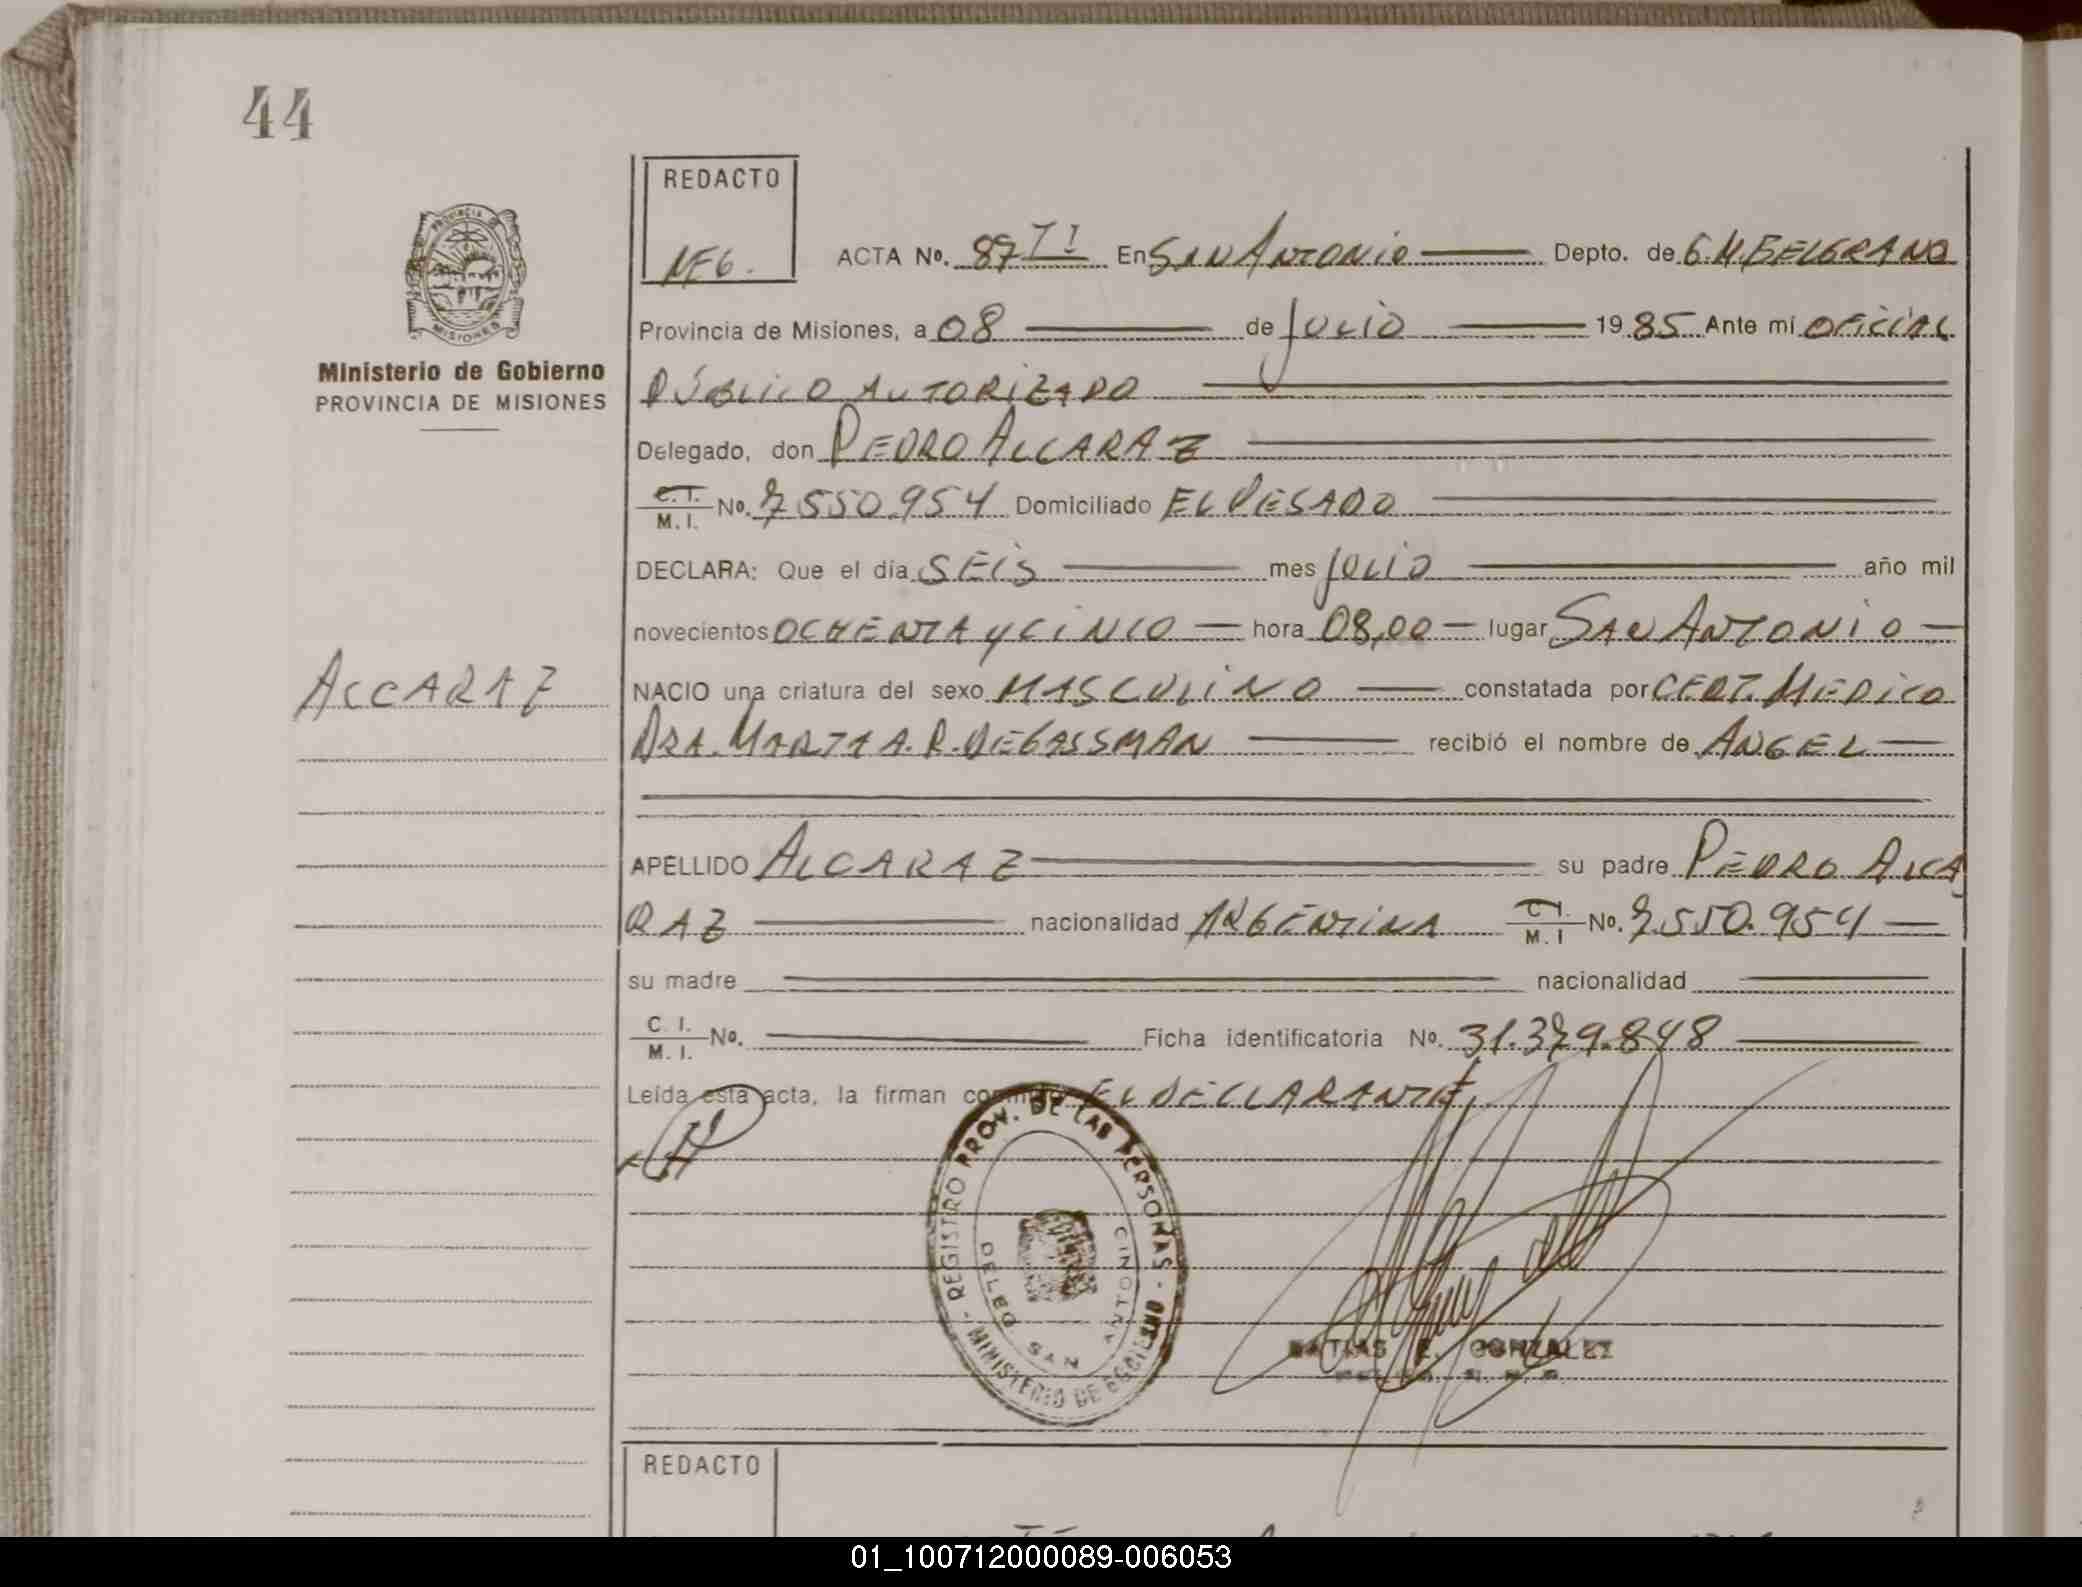 44
REDACTO
MEG.
ACTA No. 87 TI En SAN ANTONIO Depto. de G.M.BELGRANO
Provincia de Misiones, a 08 de JULIO 1985 Ante mí OFICIAL
PÚBLICO AUTORIZADO
Delegado, don PEDRO ALCARAZ
C.I. M.I. No. 7.550.954 Domiciliado EL PESADO
DECLARA: Que el día SEIS mes JULIO año mil
novecientos OCHENTA y CINCO hora 08,00 lugar SAN ANTONIO
NACIO una criatura del sexo MASCULINO constatada por CERT. MEDICO
DRA. MARTA A. R. DE GASSMAN recibió el nombre de ANGEL
APELLIDO ALCARAZ su padre PEDRO ALCA
RAZ nacionalidad ARGENTINA C.I. M.I No. 7.550.954
su madre nacionalidad
C. I. M. I. No. Ficha identificatoria No. 31.379.848
Leída esta acta, la firman conmigo EL DECLARANTE,
PROVINCIA DE MISIONES
Ministerio de Gobierno
PROVINCIA DE MISIONES
ALCARAZ
REGISTRO PROV. DE LAS PERSONAS - MINISTERIO DE
DELEG. SAN ANTONIO
MATIAS E. GONZALEZ
REDACTO
01_100712000089-006053